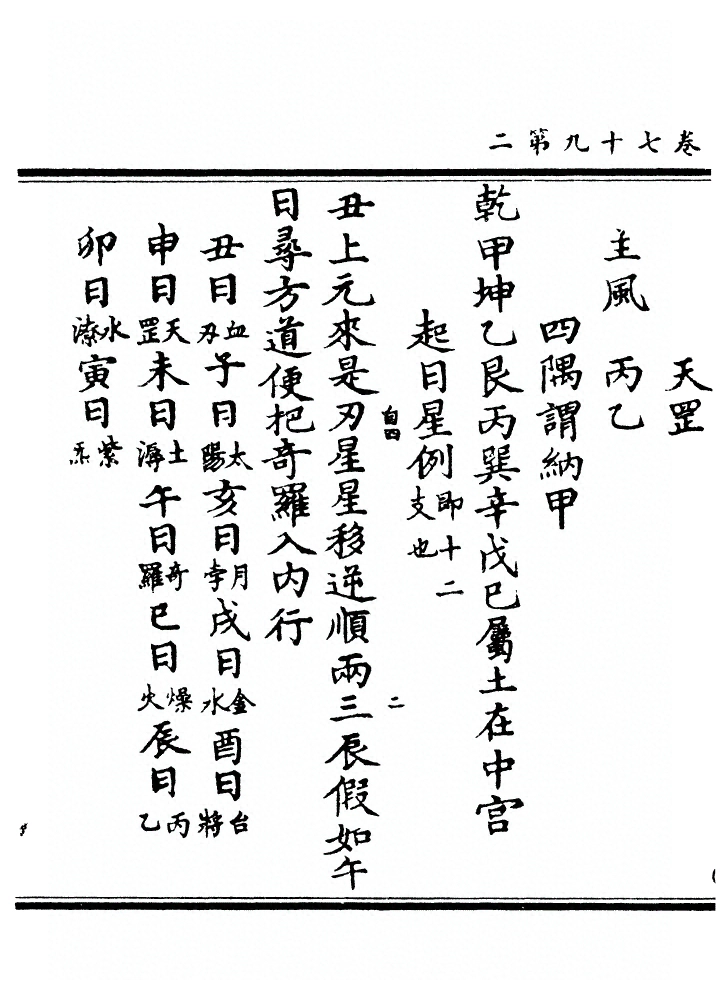 卷七十九第二
天罡
主風 丙乙
四隅謂納甲
乾甲坤乙艮丙巽辛戊巳屬土在中宮
起日星例即十二支也
自四 二
丑上元來是刃星星移逆順兩三辰假如午
日尋方道便把奇羅入內行
丑日血刃子日太陽亥日月孛戌日金水酉日台將
申日天罡未日土溽午日奇羅巳日燥火辰日丙乙
卯日水潦寅日紫炁